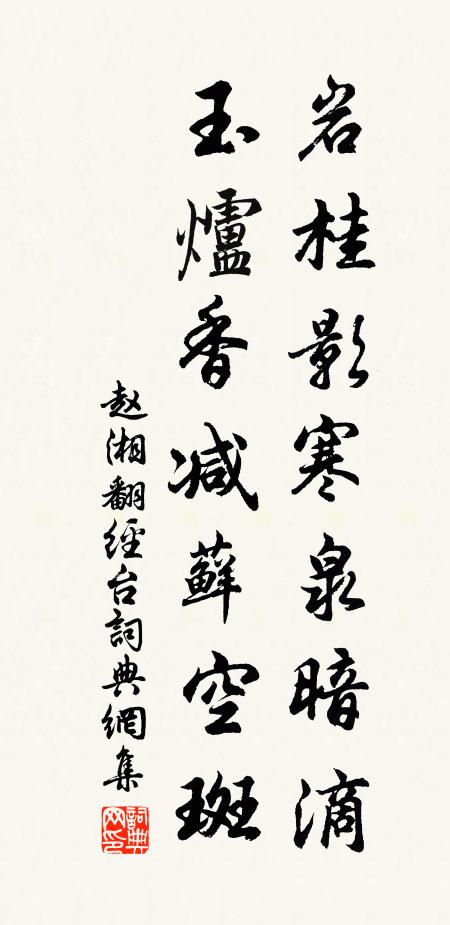 岩桂影寒泉暗滴
玉爐香减蘚空斑
赵湘翻經台詞典網集
詞典网印